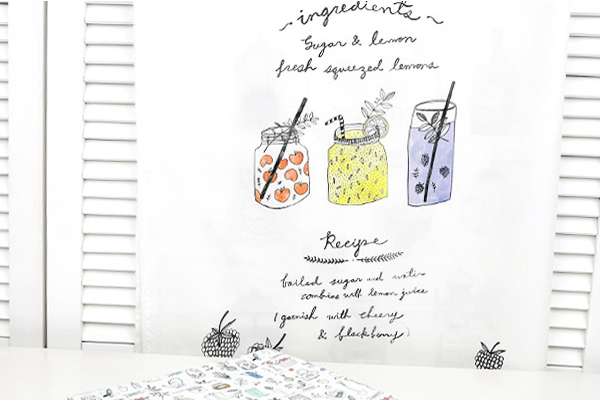 ingredients
Sugar & lemon
fresh squeezed lemons
Recipe
boiled sugar and water
combine with lemon juice
(garnish with cheery
& blackberry)